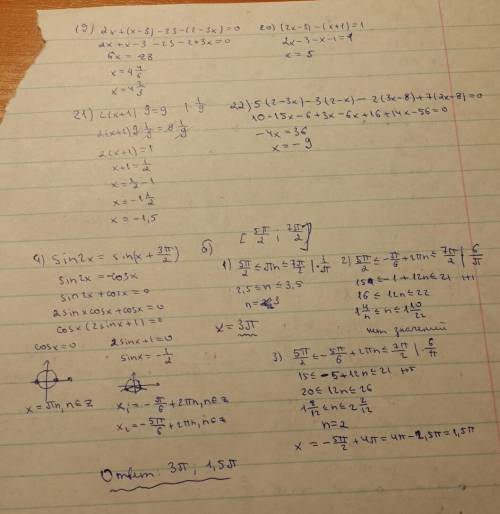 19) 2x+(x-3)-23-(2-3x)=0
2x+x-3-23-2+3x=0
6x = 28
x=4 4/6
x=4 2/3
20) (2x-3)-(x+1)=1
2x-3-x-1=1
x=5
21) 2(x+1) 9=9 | 1/9
2(x+1)9·1/9=9·1/9
2(x+1)=1
x+1=1/2
x=1/2-1
x=-1 1/2
x=-1,5
22) 5(2-3x)-3(2-x)-2(3x-8)+7(2x-8)=0
10-15x-6+3x-6x+16+14x-56=0
-4x=36
x=-9
а) sin2x = sin(x+3π/2)
sin2x=-cosx
sin2x+cosx=0
2sinxcosx+cosx=0
cosx(2sinx+1)=0
cosx=0
2sinx+1=0
sinx=-1/2
x=πn, n∈Z
x₁=-π/6+2πn, n∈Z
x₂=-5π/6+2πn, n∈Z
б) [5π/2; 7π/2]
1) 5π/2≤πn≤7π/2 |·1/π
2,5≤n≤3,5
n=3
x=3π
2) 5π/2≤-π/6+2πn≤7π/2 | 6/π
15≤-1+12n≤21 |+1
16≤12n≤22
нет значений
3) 5π/2≤-5π/6+2πn≤7π/2 | 6/π
15≤-5+12n≤21 |+5
20≤12n≤26
1 8/12≤n≤2 2/12
n=2
x=-5π/2+4π=4π-2,5π=1,5π
Ответ: 3π; 1,5π